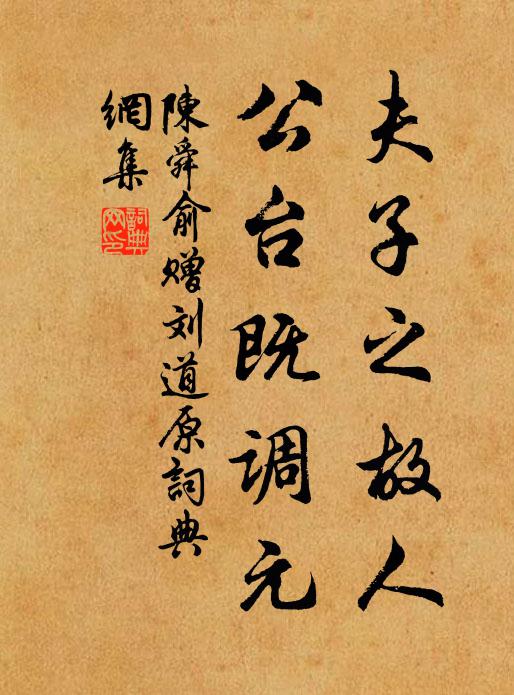 夫子之故人
公台既调元
陳舜俞赠刘道原詞典
網集
詞典
网印